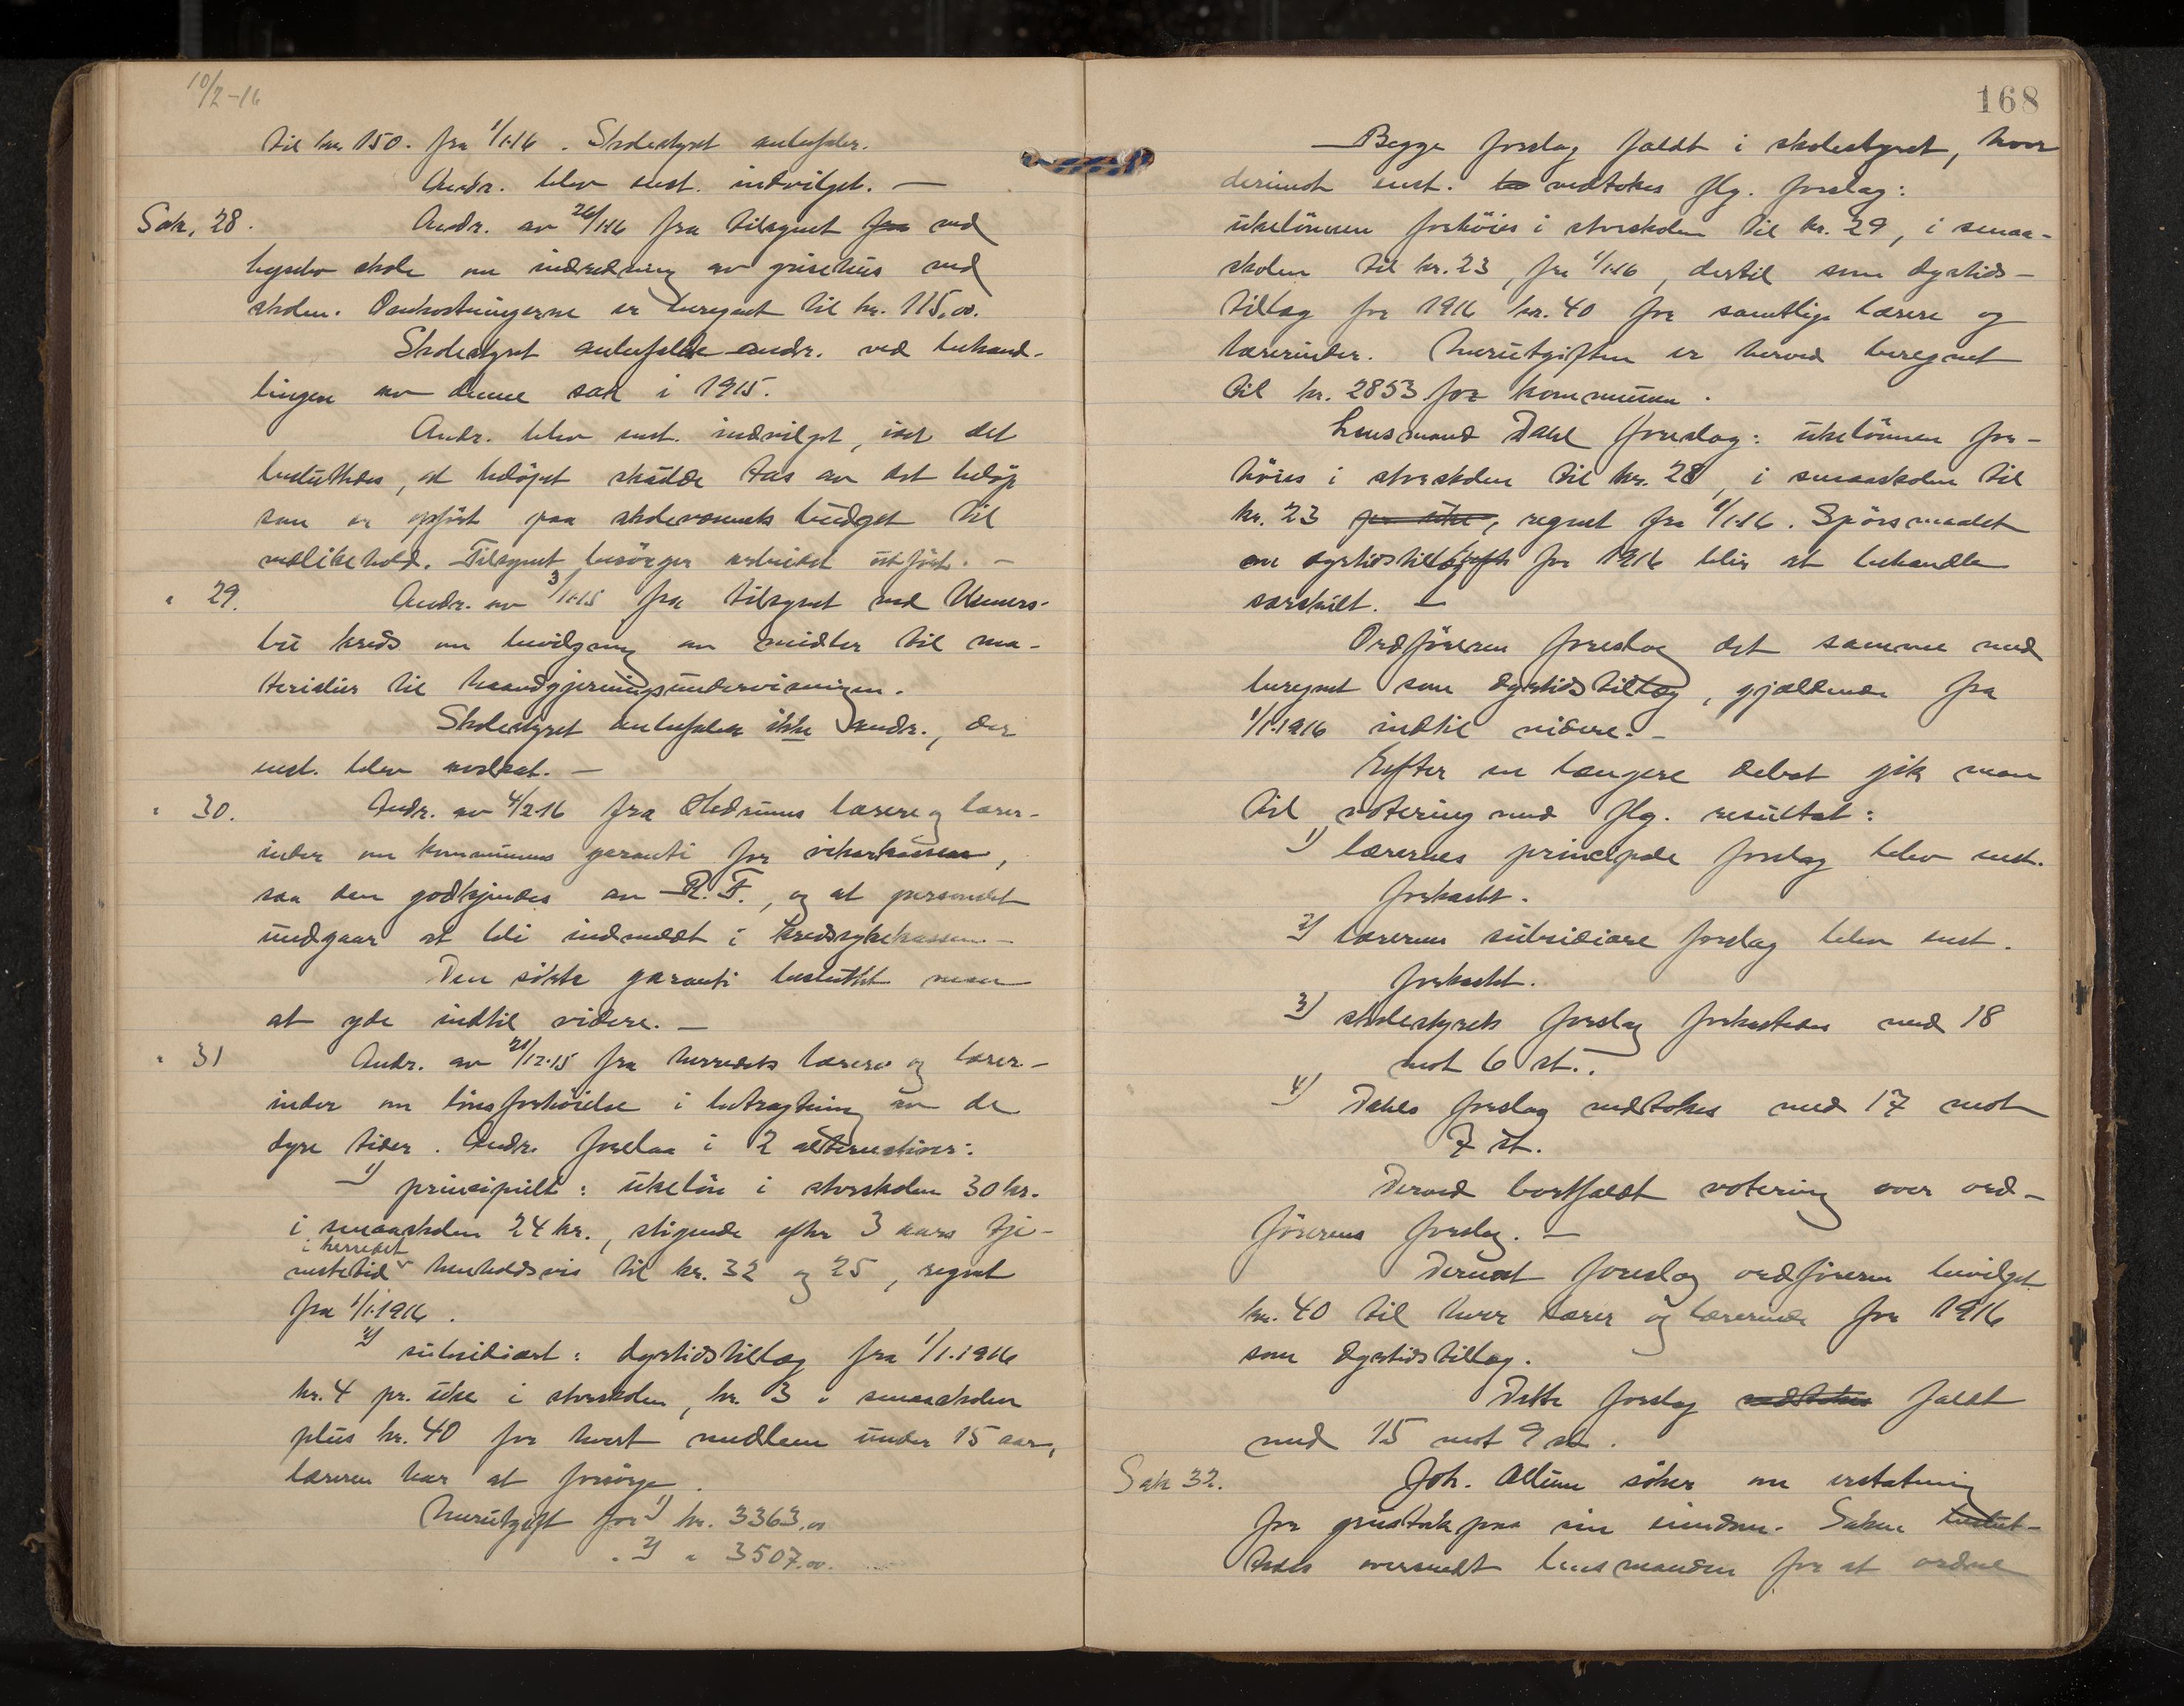 10/2-16
til kr. 150. fra 1/1-16. Skolestyret anbefaler.
Andr. blev enst. indvilget. —
Sak, 28. Andr. av 26/1-16 fra tilsynet fra ved
skole om indredning av grisehus ved
skolen. Omkostningerne er beregnet til kr. 115,00.
Skolestyret anbefalte andr. ved behand-
lingen av denne sak i 1915.
Andr. blev enst. indvilget, idet det
besluttedes, at beløpet skulde tas av det beløp
som er opført paa skolevæsenets budget til
vedlikehold. Tilsynet besörger arbeidet utfört. —
" 29. Andr. av 3/11-15 fra tilsynet ved
kreds om bevilgning av midler til ma-
terialer til haandgjerningsundervisningen.
Skolestyret anbefaler ikke andr., der
enst. blev avslaat. —
" 30. Andr. av 4/2-16 fra Hedrums lærere og lærer-
inder om kommunens garanti for vikarkassen,
saa den godkjendes av R.F., og at personalet
undgaar at bli indmeldt i kredssykekassen. —
Den sökte garanti besluttet man
at yde indtil videre. —
" 31 Andr. av 21/12-15 fra herredets lærere og lærer-
inder om lönsforhöielse i betragtning av de
dyre tider. Andr. forelaa i 2 alternativer:
1) principielt: ukelön i storskolen 30 kr.
i smaaskolen 24 kr., stigende efter 3 aars tje-
i herredet
nestetid henholdsvis til kr. 32 og 25, regnet
fra 1/1-1916.
2) subsidiært: dyrtidstillæg fra 1/1.1916
kr. 4 pr. uke i storskolen, kr. 3 i smaaskolen
plus kr. 40 for hvert medlem under 15 aar,
læreren har at forsörge.
Merutgift for 1) kr. 3363,00
" 2) " 3507,00.
168
Begge forslag faldt i skolestyret, hvor
derimot enst. vedtokes flg. forslag:
ukelönnen forhöies i storskolen til kr. 29, i smaa-
skolen til kr. 23, fra 1/1-16, dertil som dyrtids-
tillæg for 1916 kr. 40 for samtlige lærere og
lærerinder. Merutgiften er herved beregnet
til kr. 2853 for kommunen.
Lensmand Dahl foreslog: ukelönnen for-
höies i storskolen til kr. 28, i smaaskolen til
kr. 23 per uke, regnet fra 1/1-16. Spörsmaalet
om dyrtidstillæg for 1916 blir at behandle
særskilt. —
Ordföreren foreslog det samme med
beregnet som dyrtidstillæg, gjældende fra
1/1.1916 indtil videre. —
Efter en længere debat gik man
til votering med flg. resultat:
1) lærernes principale forslag blev enst.
forkastet.
2) lærernes subsidiære forslag blev enst.
forkastet.
3) skolestyrets forslag forkastedes med 18
mot 6 st..
4) Dahls forslag vedtokes med 17 mot
7 st.
Derved bortfaldt votering over ord-
förerens forslag. —
Dernæst foreslog ordföreren bevilget
kr. 40 til hver lærer og lærerinde for 1916
som dyrtidstillæg.
Dette forslag vedtokes faldt
med 15 mot 9 st.
Sak 32. Joh. Allum söker om erstatning
for grustak paa sin eiendom. Saken beslut-
tedes oversendt lensmanden for at ordne